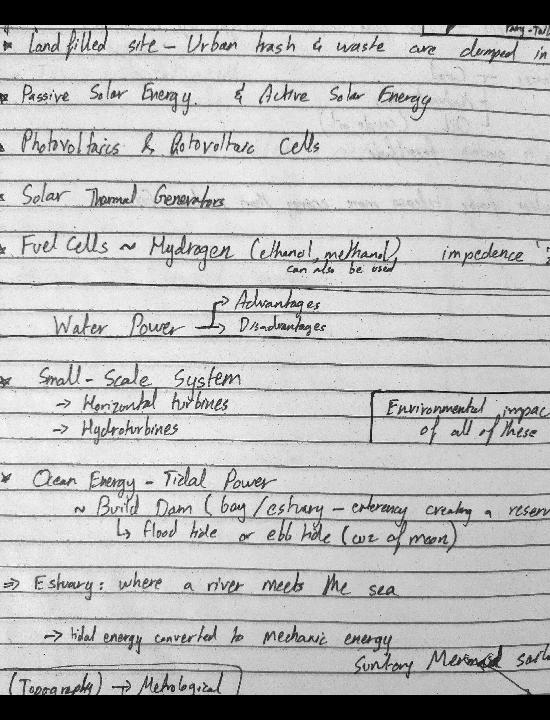 * Landfilled site - Urban trash & waste are dumped in
* Passive Solar Energy. & Active Solar Energy
* Photovoltaics & Potovoltaic Cells
* Solar Thermal Generators
* Fuel Cells ~ Hydrogen (ethanol, methanol) impedence
can also be used
Water Power → Advantages
→ Disadvantages
* Small-Scale System
→ Horizontal turbines
→ Hydroturbines
Environmental impac
of all of these
* Ocean Energy - Tidal Power
~ Build Dam (bay/estuary - enterency creating a reserv
↳ flood tide or ebb tide (coz of moon)
⇒ Estuary: where a river meets the sea
→ tidal energy converted to mechanic energy
Suntory Mermaid sail
(Topography) → Metrological